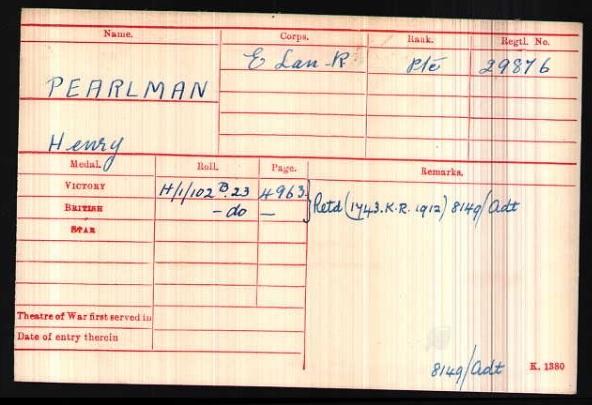 Name. Corps. Rank. Regtl. No.
PEARLMAN E Lan. R Pte 29876
Henry
Medal. Roll. Page. Remarks.
VICTORY H/1/102 B.23 4963.
BRITISH - do - Retd (1743.K.R. 1912) 8149/Adt
STAR
Theatre of War first served in
Date of entry therein
8149/Adt K. 1380